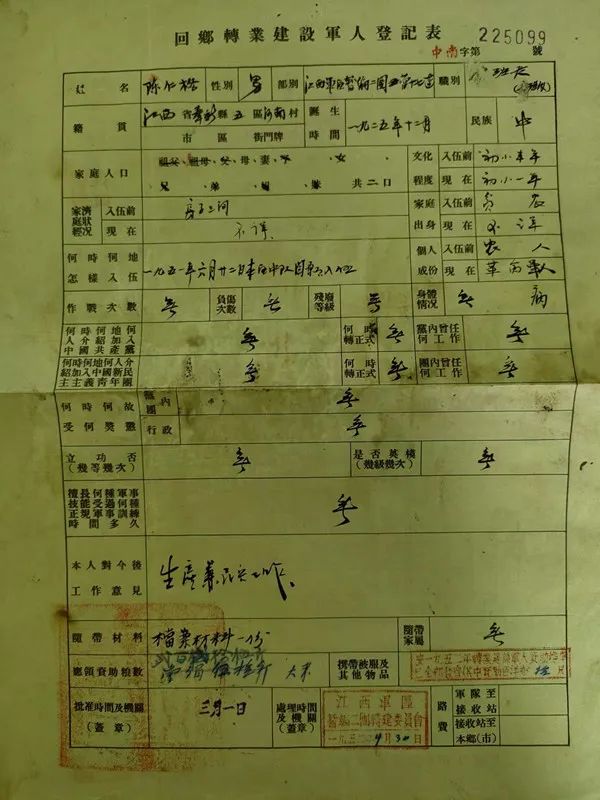 回鄉轉業建設軍人登記表
225099
中南字第 號
姓名 陈仁 性別 男 部別 江西軍区 職別 班长
籍貫 江西省 縣五區 村 誕生 一九二五年十二月 民族
市 區 街門牌 時間
家庭人口 祖父、祖母、父、母、妻、 女、 文化 入伍前 初小半年
兄、弟、 共二口 程度 現在 初小一年
家庭經濟狀况 入伍前 房子三间 家庭 入伍前 贫农
現在 不详 出身 現在 不详
何時何地 一九五一年六月廿二 個人 入伍前 农人
怎樣入伍 成份 現在 革命軍人
作戰次數 無 負傷次數 無 殘廢等級 無 身體情况 無病
何時何地何人介紹加入中國共產黨 無 何時轉正式 無 黨內曾任何工作 無
何時何地何人介紹加入中國新民主主義青年團 無 何時轉正式 無 團內曾任何工作 無
何時何故 黨內團 無
受何獎懲 行政 無
立功否(幾等幾次) 無 是否英模(幾級幾次) 無
擅長何種軍事技能受過何種正規軍事訓練時間多久 無
本人對今後
工作意見 生產兼民兵工作、
隨帶材料 檔案材料一份 隨帶家屬 無
應領資助糧數 大米 携帶被服及其他物品
批准時間及機關(蓋章) 三月一日 處理時間及機關(蓋章) 路費 軍隊至接收站
接收站至本鄉(市)
江西軍區
轉建委員會
30日